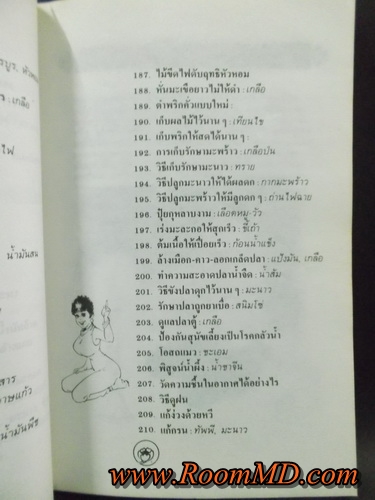 187. ไม้ขีดไฟดับฤทธิหัวหอม
188. หั่นมะเขือยาวไม่ให้ดำ : เกลือ
189. ตำพริกคั่วแบบใหม่
190. เก็บผลไม้ไว้นาน ๆ : เทียนไข
191. เก็บพริกให้สดได้นาน ๆ
192. การเก็บรักษามะพร้าว : เกลือป่น
193. วิธีเก็บรักษามะนาว : ทราย
194. วิธีปลูกมะนาวให้ได้ผลดก : กากมะพร้าว
195. วิธีปลูกมะพร้าวให้มีลูกดก ๆ : ถ่านไฟฉาย
196. ปุ๋ยกุหลาบงาม : เลือดหมู-วัว
197. เร่งมะละกอให้สุกเร็ว : ขี้เถ้า
198. ต้มเนื้อให้เปื่อยเร็ว : ก้อนน้ำแข็ง
199. ล้างเมือก-คาว-ลอกเกล็ดปลา : แป้งมัน, เกลือ
200. ทำความสะอาดปลาน้ำจืด : น้ำส้ม
201. วิธีขังปลาดุกไว้นาน ๆ : มะนาว
202. รักษาปลาถูกยาเบื่อ : สนิมไข่
203. ดูแลปลาตู้ : เกลือ
204. ป้องกันสุนัขเลี้ยงเป็นโรคกลัวน้ำ
205. โอสถแมว : ชะเอม
206. พิสูจน์น้ำผึ้ง : น้ำชาจีน
207. วัดความชื้นในอากาศได้อย่างไร
208. วิธีดูฝน
209. แก้ง่วงด้วยหวี
210. แก้กรน : ทัพพี, มะนาว
เกลือ
ไฟ
น้ำมันสน
สาร
น้ำมันพืช
www.RoomMD.com
www.RoomMD.com